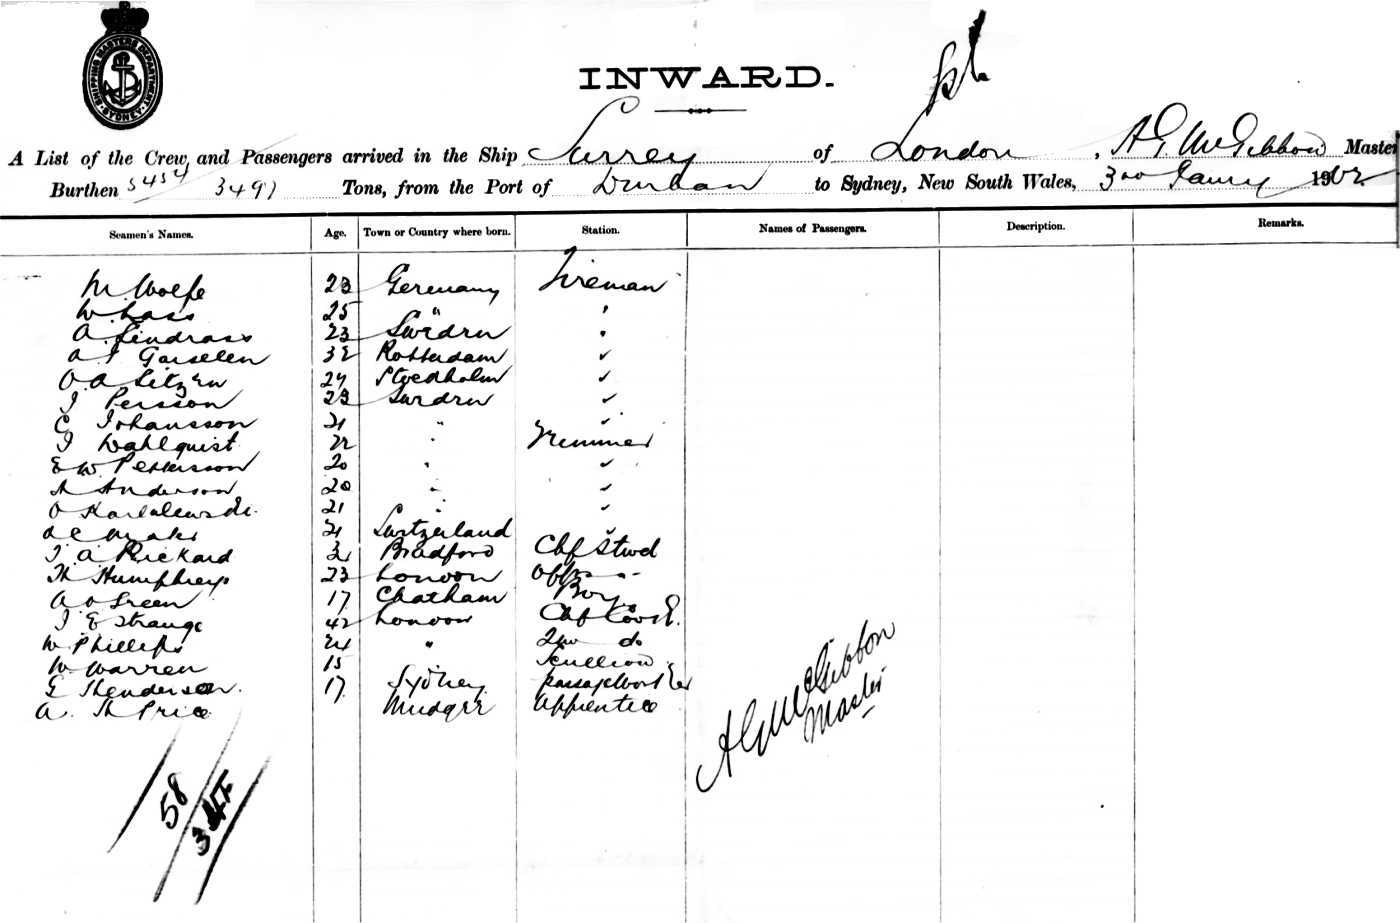 SHIPPING MASTERS DEPARTMENT SYDNEY
INWARD.
A List of the Crew and Passengers arrived in the Ship Surrey of London, A G McGibbon Master
Burthen 5454 3491 Tons, from the Port of Durban to Sydney, New South Wales, 3rd 1902
Seamen's Names. Age. Town or Country where born. Station. Names of Passengers. Description. Remarks.
M. Wolfe 23 Germany Fireman
W. Lass 25 " "
A. Lindrass 23 Sweden "
32 Rotterdam ✓
O A Sitzen 24 Stockholm ✓
J Persson 23 Sweden ✓
C Johansson 21 " ✓
J Wahlquist 22 " Trimmer
E W Pettersson 20 " ✓
A Anderson 20 " ✓
O 21 " ✓
21 Switzerland
J. A Rickard Bradford Chf Stwd
Th Humphreys 23 London
A O Green 17 Chatham Boy
J E Strange 42 London Chf Cook
W Phillips 24 " 2nd do
W Warren 15 Scullion
E Henderson 17 Sydney Passage Worker
A. H Price Mudgee Apprentice
A G McGibbon
Master
58